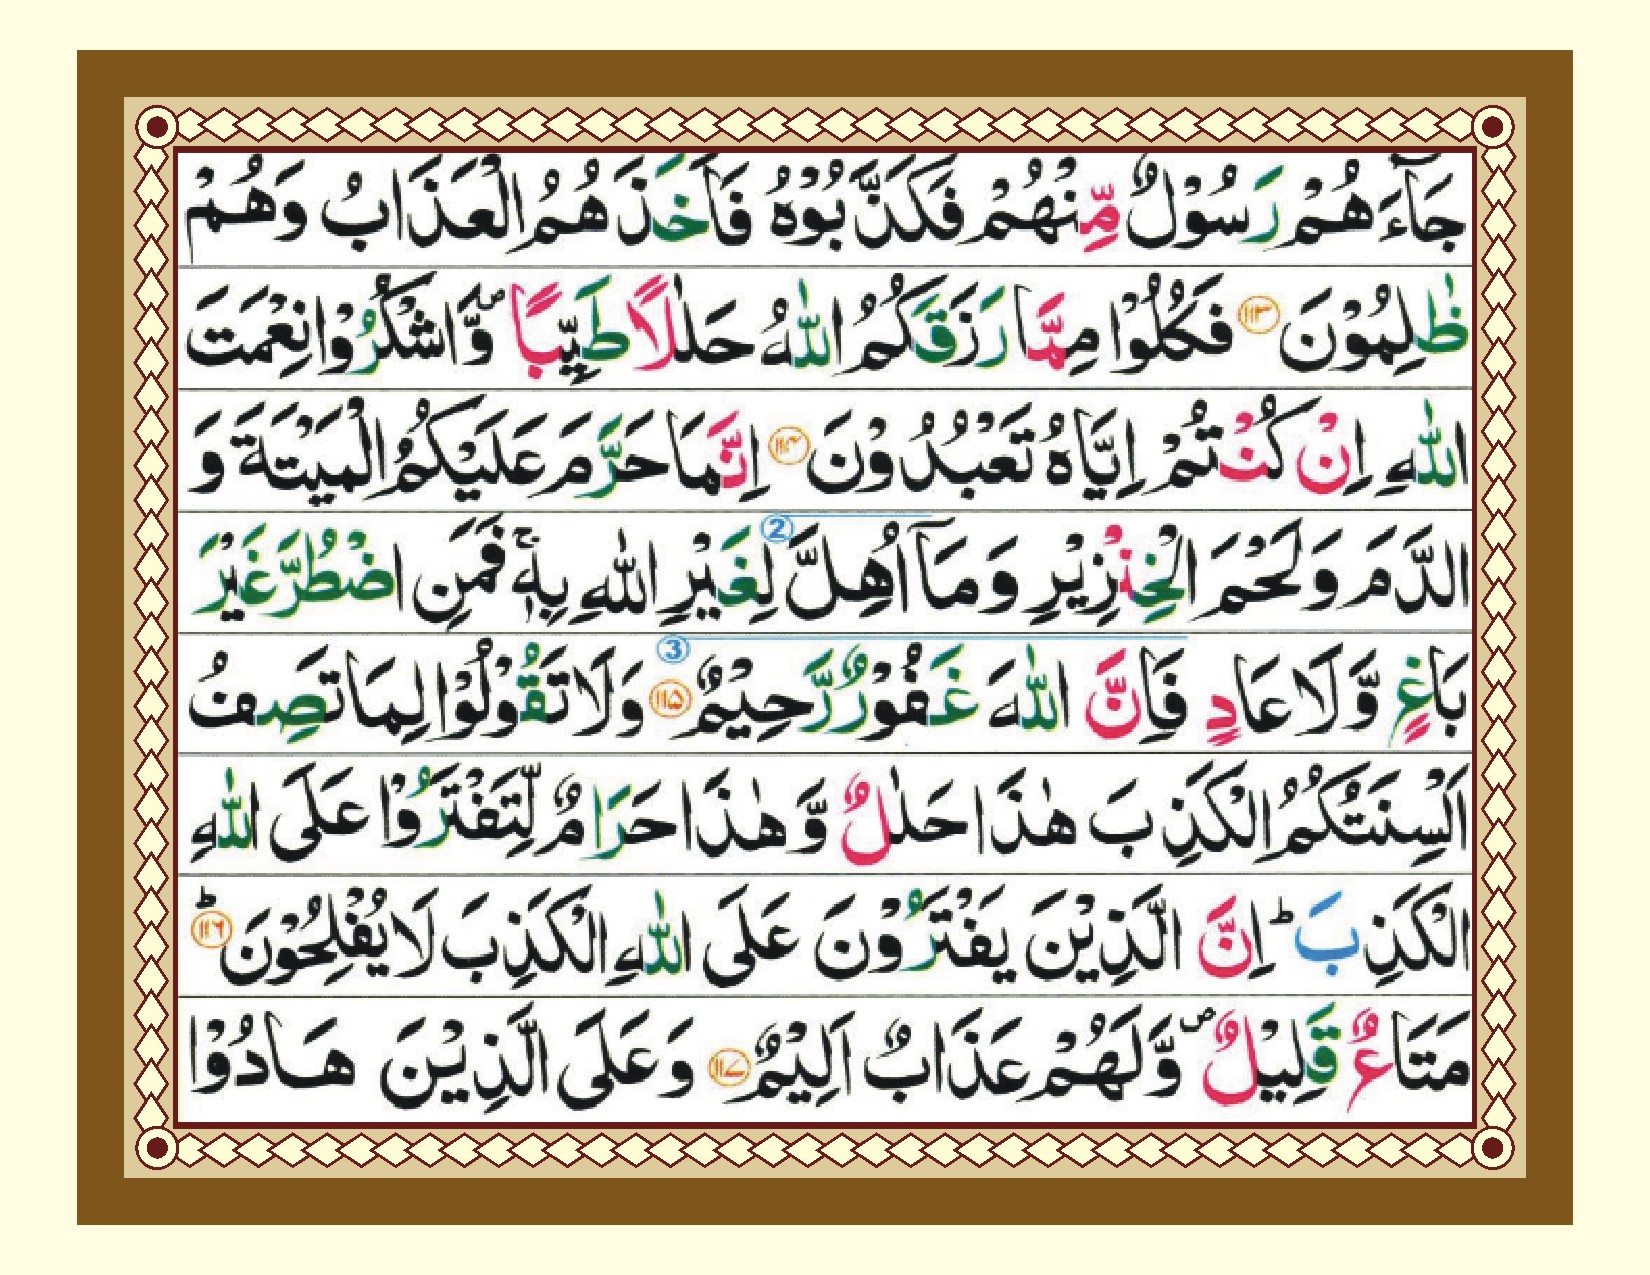 جَآءَهُمْ رَسُوْلٌ مِّنْهُمْ فَكَذَّبُوْهُ فَاَخَذَهُمُ الْعَذَابُ وَهُمْ
ظٰلِمُوْنَ ﴿۱۱۳﴾ فَكُلُوْا مِمَّا رَزَقَكُمُ اللّٰهُ حَلٰلًا طَيِّبًا ۪ وَّاشْكُرُوْا نِعْمَتَ
اللّٰهِ اِنْ كُنْتُمْ اِيَّاهُ تَعْبُدُوْنَ ﴿۱۱۴﴾ اِنَّمَا حَرَّمَ عَلَيْكُمُ الْمَيْتَةَ وَ
الدَّمَ وَلَحْمَ الْخِنْزِيْرِ وَمَآ اُهِلَّ ② لِغَيْرِ اللّٰهِ بِهٖ ۚ فَمَنِ اضْطُرَّ غَيْرَ
بَاغٍ وَّلَا عَادٍ فَاِنَّ اللّٰهَ غَفُوْرٌ رَّحِيْمٌ ③ ﴿۱۱۵﴾ وَلَا تَقُوْلُوْا لِمَا تَصِفُ
اَلْسِنَتُكُمُ الْكَذِبَ هٰذَا حَلٰلٌ وَّهٰذَا حَرَامٌ لِّتَفْتَرُوْا عَلَى اللّٰهِ
الْكَذِبَ ؕ اِنَّ الَّذِيْنَ يَفْتَرُوْنَ عَلَى اللّٰهِ الْكَذِبَ لَا يُفْلِحُوْنَ ؕ ﴿۱۱۶﴾
مَتَاعٌ قَلِيْلٌ ۪ وَّلَهُمْ عَذَابٌ اَلِيْمٌ ﴿۱۱۷﴾ وَعَلَى الَّذِيْنَ هَادُوْا